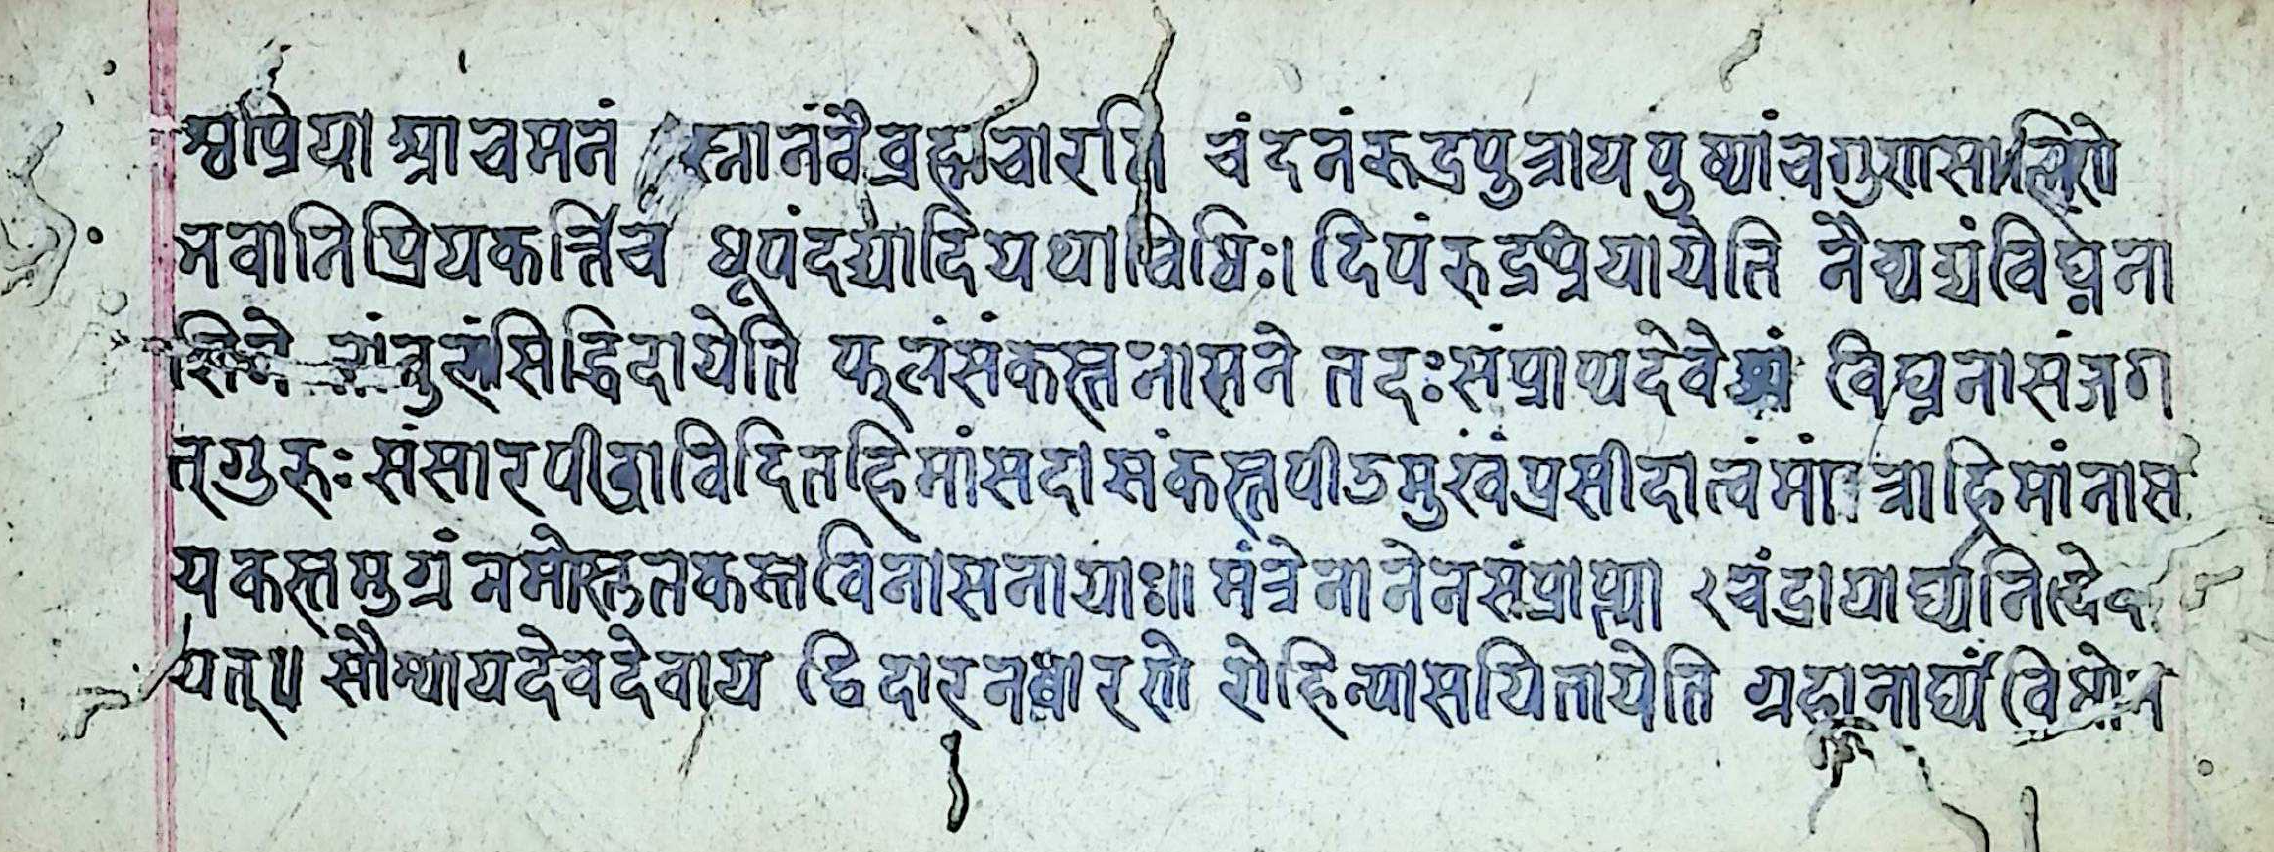 श्वप्रिया आचमनं स्नानंवैब्रह्मचारणि चंदनंरूद्रपुत्रायपुष्पांचगुणसालिणे
भवानिप्रियकर्त्तिच धूपंदद्यादियथाविधिः। दिपंरुद्रप्रियायेति नैव्यद्यंविघ्नना
शिने सिद्धिदायेति फलंसंकस्तनासने तदःसंप्राप्यदेवेशं विघ्ननासंजग
त्गुरुः संसारपीडाविदितहिमांसदासंकस्तपीडमुखंप्रसीदात्वंमां त्राहिमांनास
यकस्तमुग्रंनमोस्तुतकस्तविनासनायाः॥ मंत्रेनानेनसंप्राप्त्या २चंद्रायार्घ्यनिवेद
यत्॥ सौम्यायदेवदेवाय द्विदारनधारणे रोहिन्यासयितायेति ग्रहानार्घ्यं